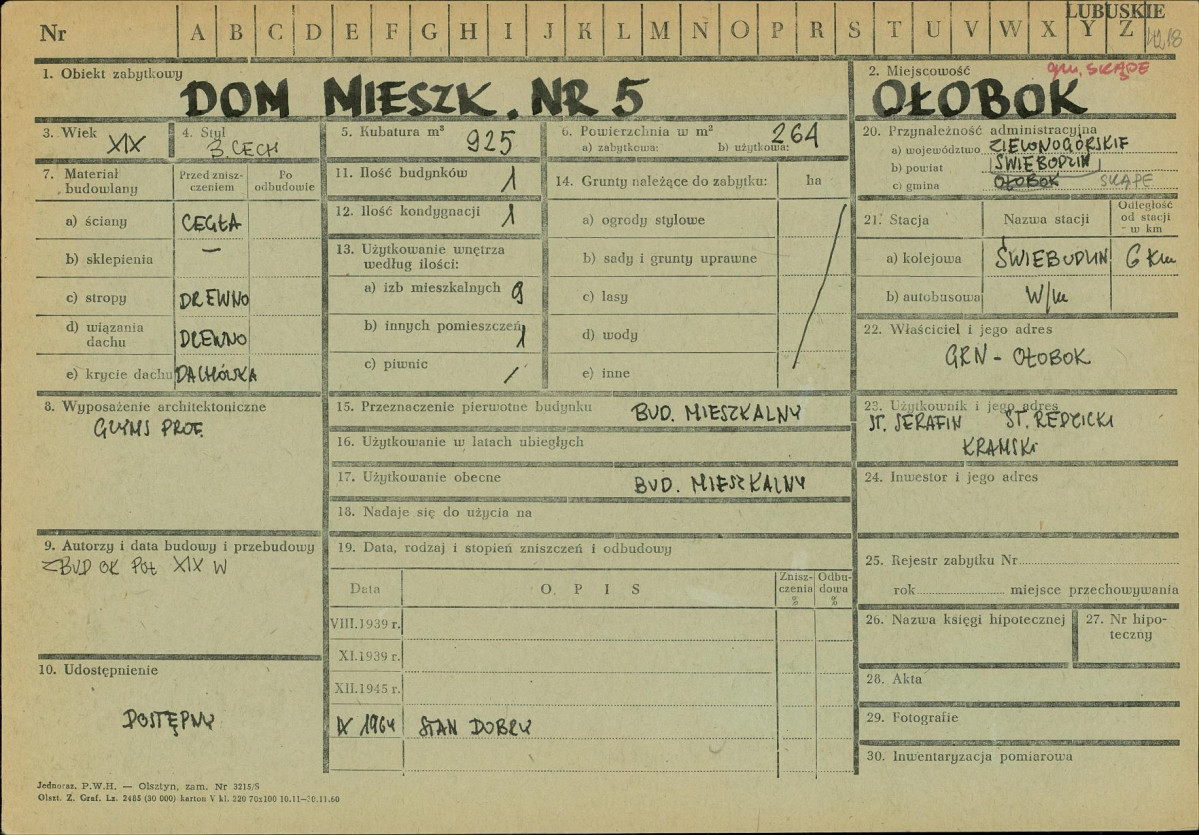 LUBUSKIE
Nr A B C D E F G H I J K L M N O P R S T U V W X Y Z
1. Obiekt zabytkowy
DOM MIESZK. NR 5
2. Miejscowość
gm. SKĄPE
OŁOBOK
3. Wiek
XIX
4. Styl
B. CECH
5. Kubatura m³
925
6. Powierzchnia w m²
a) zabytkowa: b) użytkowa:
264
7. Materiał budowlany
Przed zniszczeniem
Po odbudowie
a) ściany CEGŁA
b) sklepienia —
c) stropy DREWNO
d) wiązania dachu DREWNO
e) krycie dachu DACHÓWKA
11. Ilość budynków 1
12. Ilość kondygnacji 1
13. Użytkowanie wnętrza
według ilości:
a) izb mieszkalnych 9
b) innych pomieszczeń 1
c) piwnic /
14. Grunty należące do zabytku: ha
a) ogrody stylowe
b) sady i grunty uprawne
c) lasy
d) wody
e) inne
20. Przynależność administracyjna
a) województwo ZIELONOGÓRSKIE
b) powiat ŚWIEBODZIN
c) gmina OŁOBOK SKĄPE
21. Stacja
Nazwa stacji
Odległość
od stacji
- w km
a) kolejowa ŚWIEBODZIN 6 km
b) autobusowa W/m
22. Właściciel i jego adres
GRN - OŁOBOK
8. Wyposażenie architektoniczne
GZYMS PROF.
15. Przeznaczenie pierwotne budynku BUD. MIESZKALNY
16. Użytkowanie w latach ubiegłych
17. Użytkowanie obecne BUD. MIESZKALNY
18. Nadaje się do użycia na
23. Użytkownik i jego adres
ST. SERAFIN ST. REDZICKI
KRAMSKI
24. Inwestor i jego adres
9. Autorzy i data budowy i przebudowy
ZBUD OK POŁ XIX W
19. Data, rodzaj i stopień zniszczeń i odbudowy
Data
O P I S
Zniszczenia %
Odbudowa %
VIII.1939 r.
XI.1939 r.
XII.1945 r.
IX 1964 STAN DOBRY
25. Rejestr zabytku Nr
rok miejsce przechowywania
26. Nazwa księgi hipotecznej
27. Nr hipoteczny
28. Akta
29. Fotografie
30. Inwentaryzacja pomiarowa
10. Udostępnienie
DOSTĘPNY
Jednoraz. P.W.H. — Olsztyn, zam. Nr 3215/S
Olszt. Z. Graf. Lz. 2485 (30 000) karton V kl. 220 70x100 10.11—30.11.60